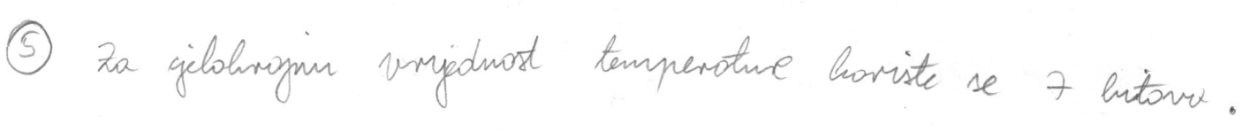 5 Za cjelobrojnu vrijednost temperature koriste se 7 bitova.